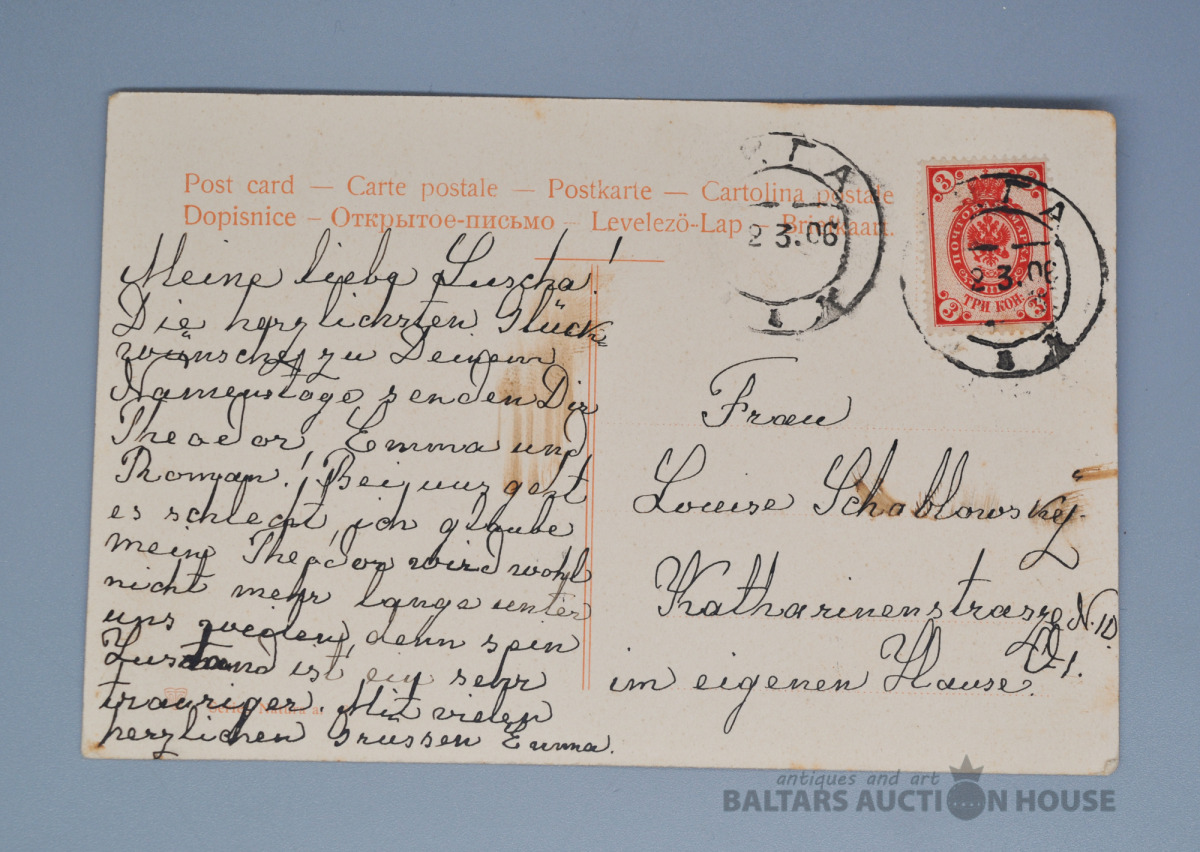 Post card — Carte postale — Postkarte — Cartolina postale
Dopisnice — Открытое-письмо — Levelező-Lap — Briefkaart.
Meine liebe Luscha!
Die herzlichsten Glück-
wünsche zu Deinem
Namenstage senden Dir
Theodor, Emma und
Roman! Bei uns geht
es schlecht, ich glaube
mein Theodor wird wohl
nicht mehr lange unter
uns weilen, denn sein
Zustand ist ein sehr
trauriger. Mit vielen
herzlichen Grüssen Emma.
2 3.06
3 3
ПОЧТОВАЯ МАРКА
ТРИ КОП.
3 3
2 3.06
Frau
Louise Schablowsky
Katharinenstrasse N. 10
im eigenen Hause.
antiques and art
BALTARS AUCTION HOUSE